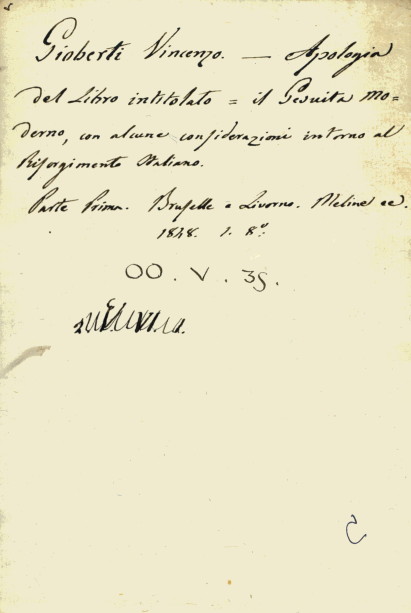 Gioberti Vincenzo. — Apologia
del Libro intitolato = il Gesuita mo=
derno, con alcune considerazioni intorno al
Risorgimento Italiano.
Parte Prima. Brusselle e Livorno. Meline ec.
1848. 1. 8º.
OO. V. 39.